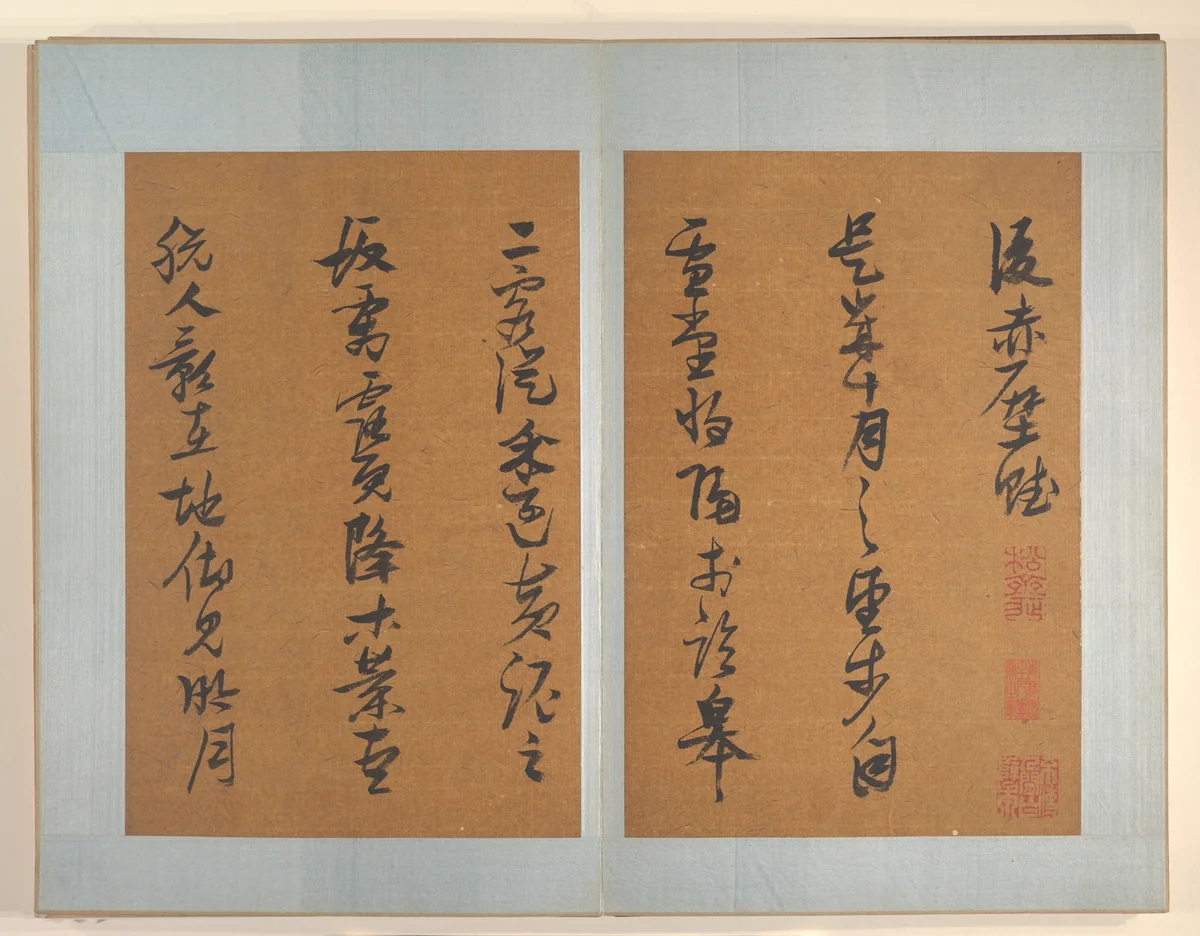 後赤壁賦
是歲十月之望步自
雪堂將歸于臨皋
二客從余過黃泥之
坂霜露既降木葉盡
脫人影在地仰見明月